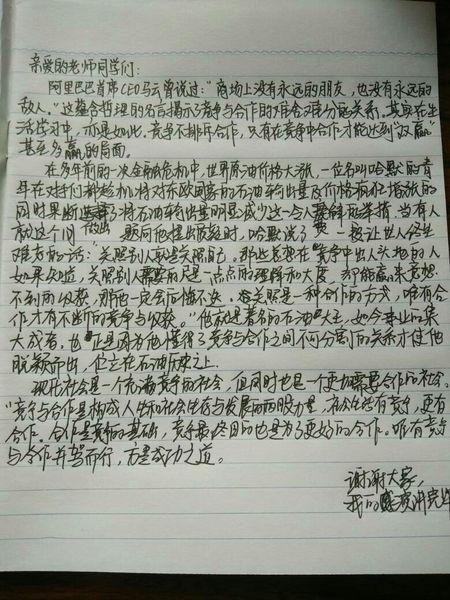 亲爱的老师同学们:
阿里巴巴首席CEO马云曾说过:"商场上没有永远的朋友,也没有永远的
敌人。"这蕴含哲理的名言揭示了竞争与合作的难舍难分的关系。其实在生
活学习中,亦是如此,竞争不排斥合作,只有在竞争中合作才能达到"双赢"
甚至多赢的局面。
在多年前的一次金融危机中,世界原油价格大涨,一位名叫哈默的青
年在对手们都趁机将对东欧国家的石油输出量及价格疯狂增涨的
同时果断 了将石油输出量明显减少这一令人 解的举措。当有人
就这个问 做出 题向他提出质疑时,哈默说了 一 投让世人终生
难忘的话:"关照别人就是关照自己。那些总想在竞争中出人头地的人
如果知道,关照别人需要的只是一点点的理解和大度,却能赢来意想
不到的收获,那他一定会后悔不迭。关照是一种合作的方式,唯有合
作才有不断的竞争与收获。"他就是著名的石油大王,如今事业的集
大成者。也正是因为他懂得了竞争与合作之间不可分离的关系才使他
脱颖而出,伫立在石油历史之上。
现代社会是一个充满竞争的社会,但同时也是一个更加需要合作的社会。
"竞争与合作是构成人生和社会生存与发展的两股力量,社会生活有竞争,更有
合作。合作是竞争的基础,竞争最终目的也是为了更好的合作。唯有竞争
与合作并驾而行,方是成功之道。
谢谢大家,
我的演讲完毕